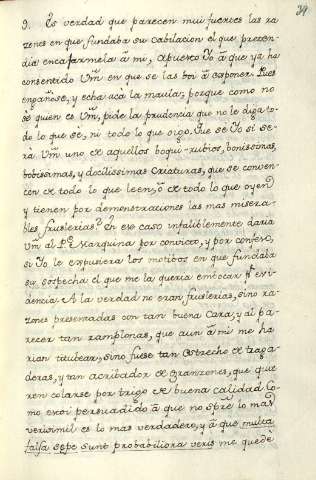 39
9. Es verdad que parecen mui fuertes las ra
zones en que fundaba su cabilacion el que preten-
dia encasarmela à mi; apuesto Yo à que ya ha
consentido Vm en que se las boi à exponer. Pues
engañose, y echa acà la maula; porque como no
sè quien es Vm, pide la prudencia que no le diga to-
do lo que sè, ni todo lo que oigo. Que se Yo si se-
rà Vm uno de aquellos boqui-rubios, bonissimas,
bobissimas, y docilissimas Criaturas, que se conven-
cen de todo lo que leen, ò de todo lo que oyen
y tienen por demonstraciones las mas misera-
bles fruslerias? En ese caso infaliblemente daria
Vm al Pe Marquina por convicto, y por confeso,
si Yo le expusiera los motibos en que fundaba
su sospecha el que me la queria embocar pr evi-
dencia. A la verdad no eran fruslerias, sino ra-
zones presentadas con tan buena Cara, y al pa-
recer tan ramplonas, que aun à mi me ha
rian titubear, sino fuese tan estrecho de traga-
deras, y tan acribador de granzones, que quie
ren colarse por trigo de buena calidad Co-
mo estoi persuadido à que no spre lo mas
verisimil es lo mas verdadero, y à que multa
falsa sepe sunt probabiliora veris me quedè